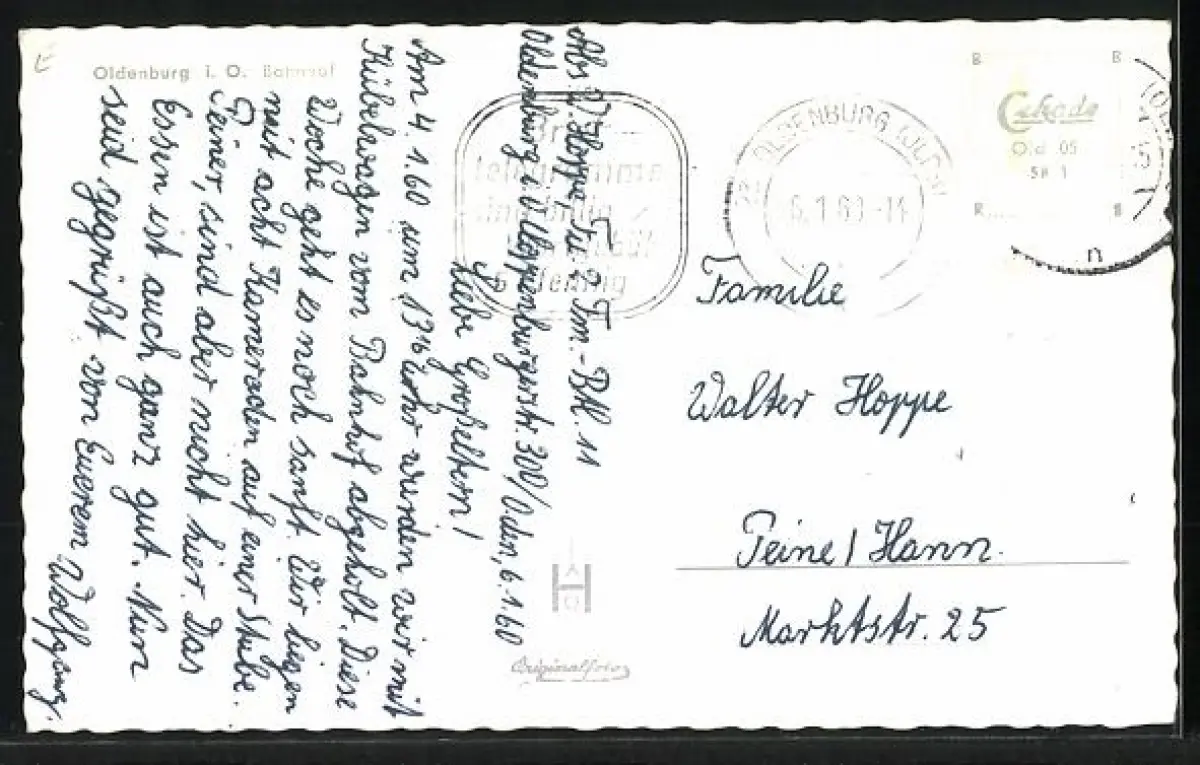 Oldenburg i. O. Bahnhof
Abs. W. Hoppe, Fu. 2 Fm.-Btl. 11
Oldenburg i O Kloppenburgerstr. 300/Oden, 6.1.60
Liebe Großeltern!
Am 4.1.60 um 13 16 Uhr wurden wir mit
Kübelwagen vom Bahnhof abgeholt. Diese
Woche geht es noch sanft. Wir liegen
mit acht Kameraden auf einer Stube.
Peiner, sind aber nicht hier. Das
Essen ist auch ganz gut. Nun
seid gegrüßt von Eurem Wolfgang.
telegramme
sind billig
OLDENBURG (OLDB)
6.1.60-11
Cekade
Old 05
58 1
Familie
Walter Hoppe
Peine / Hann.
Marktstr. 25
H
Originalfoto